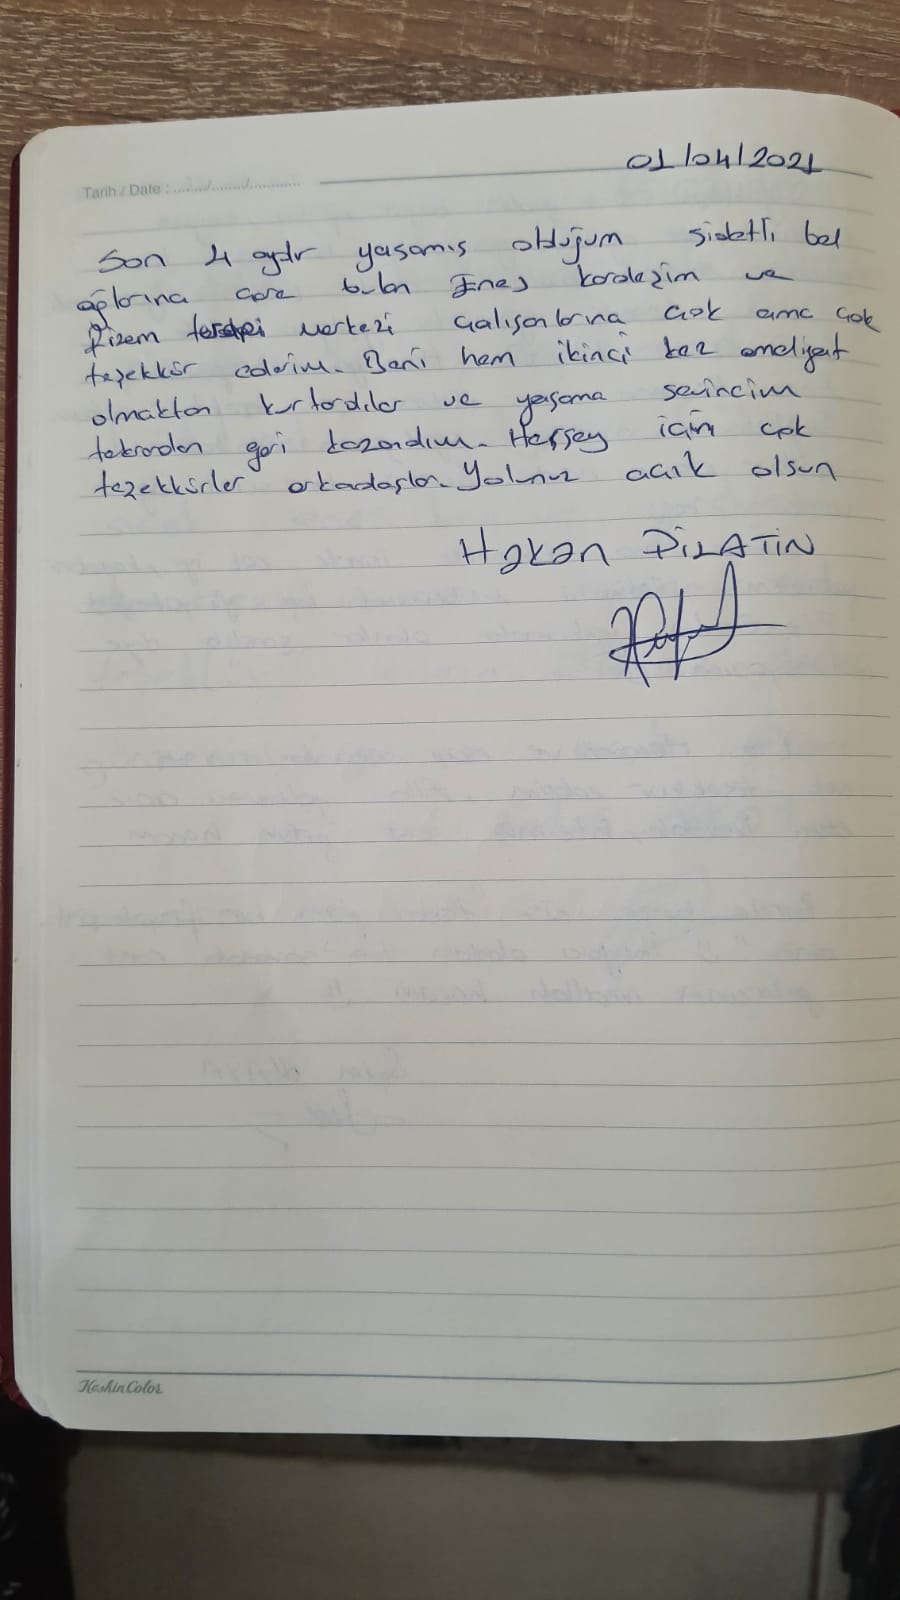 01/04/2021
Tarih / Date : ......../......../............
Son 4 aydır yaşamış olduğum şidetli bel
ağlarına çare bulan Enes kardeşim ve
Fizem terapi merkezi çalışanlarına çok ama çok
teşekkür ederim. Beni hem ikinci kez ameliyat
olmaktan kurtardılar ve yaşama sevincim
tekrardan geri kazandım. Herşey için çok
teşekkürler arkadaşlar. Yolunuz açık olsun
Hakan DİLATİN
KeskinColor